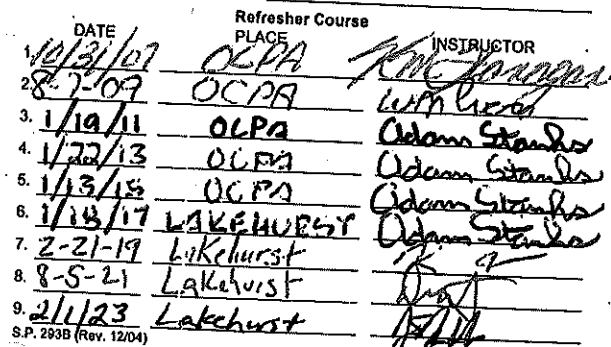 Refresher Course
DATE PLACE INSTRUCTOR
1. 10/31/07 OCPA
2. 8-7-09 OCPA
3. 1/19/11 OCPA Adam Stanks
4. 1/22/13 OCPA Adam Stanks
5. 1/13/15 OCPA Adam Stanks
6. 1/18/17 LAKEHURST Adam Stanks
7. 2-21-19 Lakehurst
8. 8-5-21 Lakehurst
9. 2/1/23 Lakehurst
S.P. 293B (Rev. 12/04)